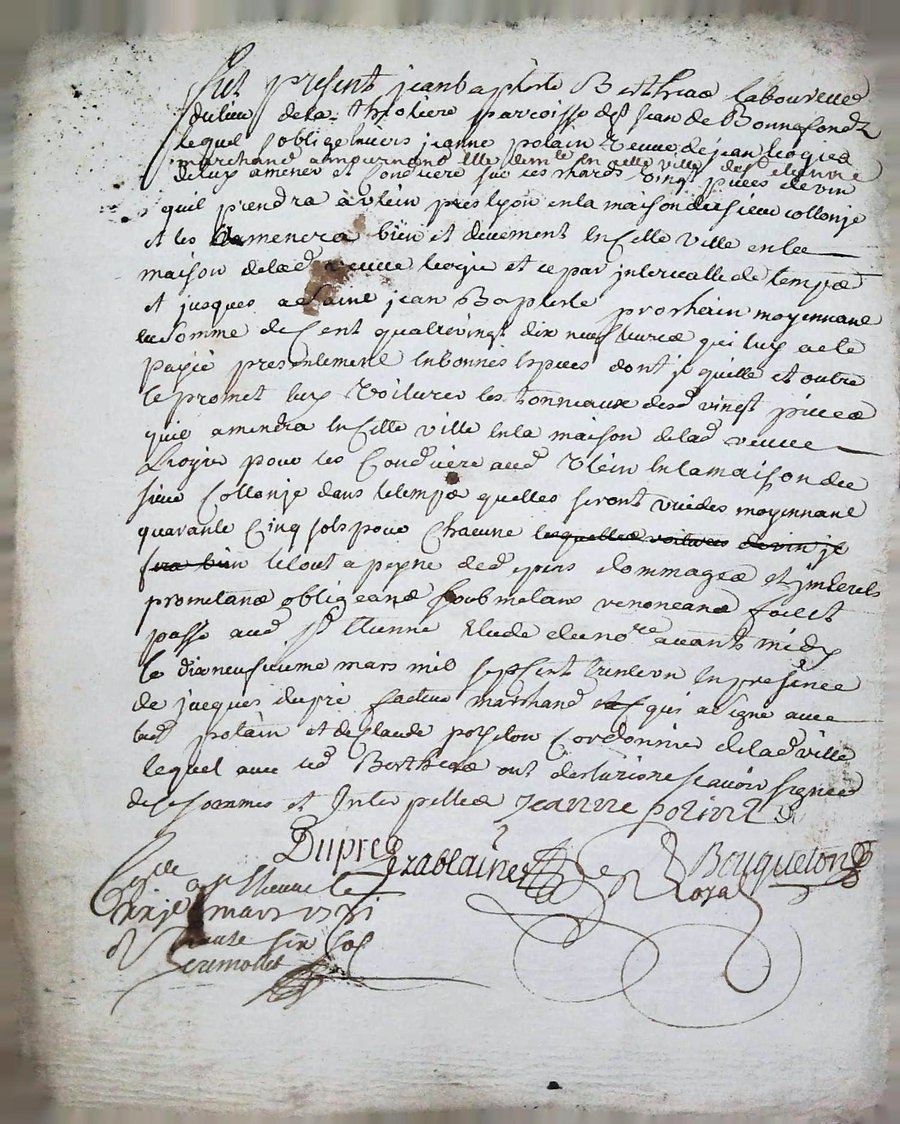 fut present jean baptiste Bertheas laboureur
du lieu de la Thioliere parroisse de St jean de Bonnefondz
lequel soblige envers jeanne polain veuve de jean
marchand demte en cette ville de St etienne
de luy amener et conduire sur ces chards vingt pieces de vin
quil prendra a vlein pres lyon en la maison du sieur collonje
et les amenera bien et deuement en cette ville en la
maison de lad veuve et ce par jntervalle de temps
et jusques a la saint jean Baptiste prochain moyennant
la somme de cent quatrevingt dix neuf livres qui luy a ete
payée presentement en bonnes especes dont jl quitte et outre
ce promet luy voiturer les tonneaux desd vingt pieces
quil amenera en cette ville en la maison de lad veuve
pour les conduire aud vlein en la maison du
sieur collonje dans le temps quelles seront vuides moyennant
quarante cinq sols pour chacune lesquelles voitures de vin jl
fera bien le tout a peyne de depens dommages et jnterets
promettant obligeant soubmetant renonceant fait et
passé aud St Etienne Etude du nore avant midy
le dixneufuieme mars mil sept cent trente un en presence
de jacques dupré facteur marchand qui a signé avec
lad polain et de Claude poyeton cordonnier de lad ville
lequel avec led Bertheas ont declaré ne scavoir signer
de ce sommes et Interpelles jeanne polain
Dupre Bouqueton
a St etienne le
mars 1731
sols